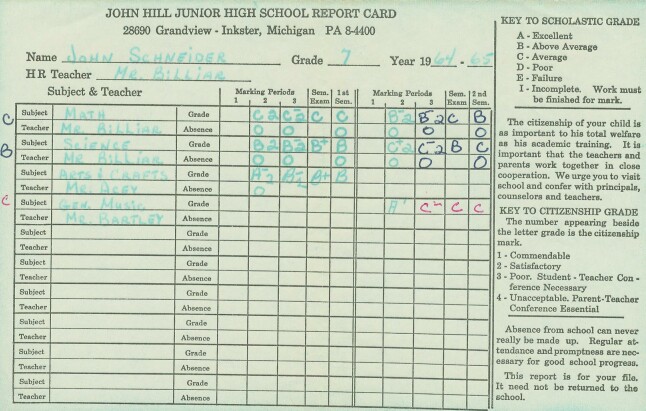 JOHN HILL JUNIOR HIGH SCHOOL REPORT CARD
28690 Grandview - Inkster, Michigan PA 8-4400
Name JOHN SCHNEIDER Grade 7 Year 1964 - 65
HR Teacher MR. BILLIAR
Subject & Teacher Marking Periods Sem. 1 st Marking Periods Sem. 2 nd
1 2 3 Exam Sem. 1 2 3 Exam Sem.
C Subject MATH Grade C 2 C-2 C C B-2 B-2 C B
Teacher MR. BILLIAR Absence 0 0 0 0 0 0
B Subject SCIENCE Grade B 2 B-2 B+ B C+2 C-2 B C
Teacher MR. BILLIAR Absence 0 0 0 0 0 0
Subject ARTS & CRAFTS Grade A-2 B-2 B+ B
Teacher MR. ACEY Absence 0
C Subject GEN. MUSIC Grade A' C- C C
Teacher MR. BARTLEY Absence
Subject Grade
Teacher Absence
Subject Grade
Teacher Absence
Subject Grade
Teacher Absence
Subject Grade
Teacher Absence
Subject Grade
Teacher Absence
Subject Grade
Teacher Absence
KEY TO SCHOLASTIC GRADE
A - Excellent
B - Above Average
C - Average
D - Poor
E - Failure
I - Incomplete. Work must
be finished for mark.
The citizenship of your child is
as important to his total welfare
as his academic training. It is
important that the teachers and
parents work together in close
cooperation. We urge you to visit
school and confer with principals,
counselors and teachers.
KEY TO CITIZENSHIP GRADE
The number appearing beside
the letter grade is the citizenship
mark.
1 - Commendable
2 - Satisfactory
3 - Poor. Student - Teacher Con-
ference Necessary
4 - Unacceptable. Parent-Teacher
Conference Essential
Absence from school can never
really be made up. Regular at-
tendance and promptness are nec-
essary for good school progress.
This report is for your file.
It need not be returned to the
school.